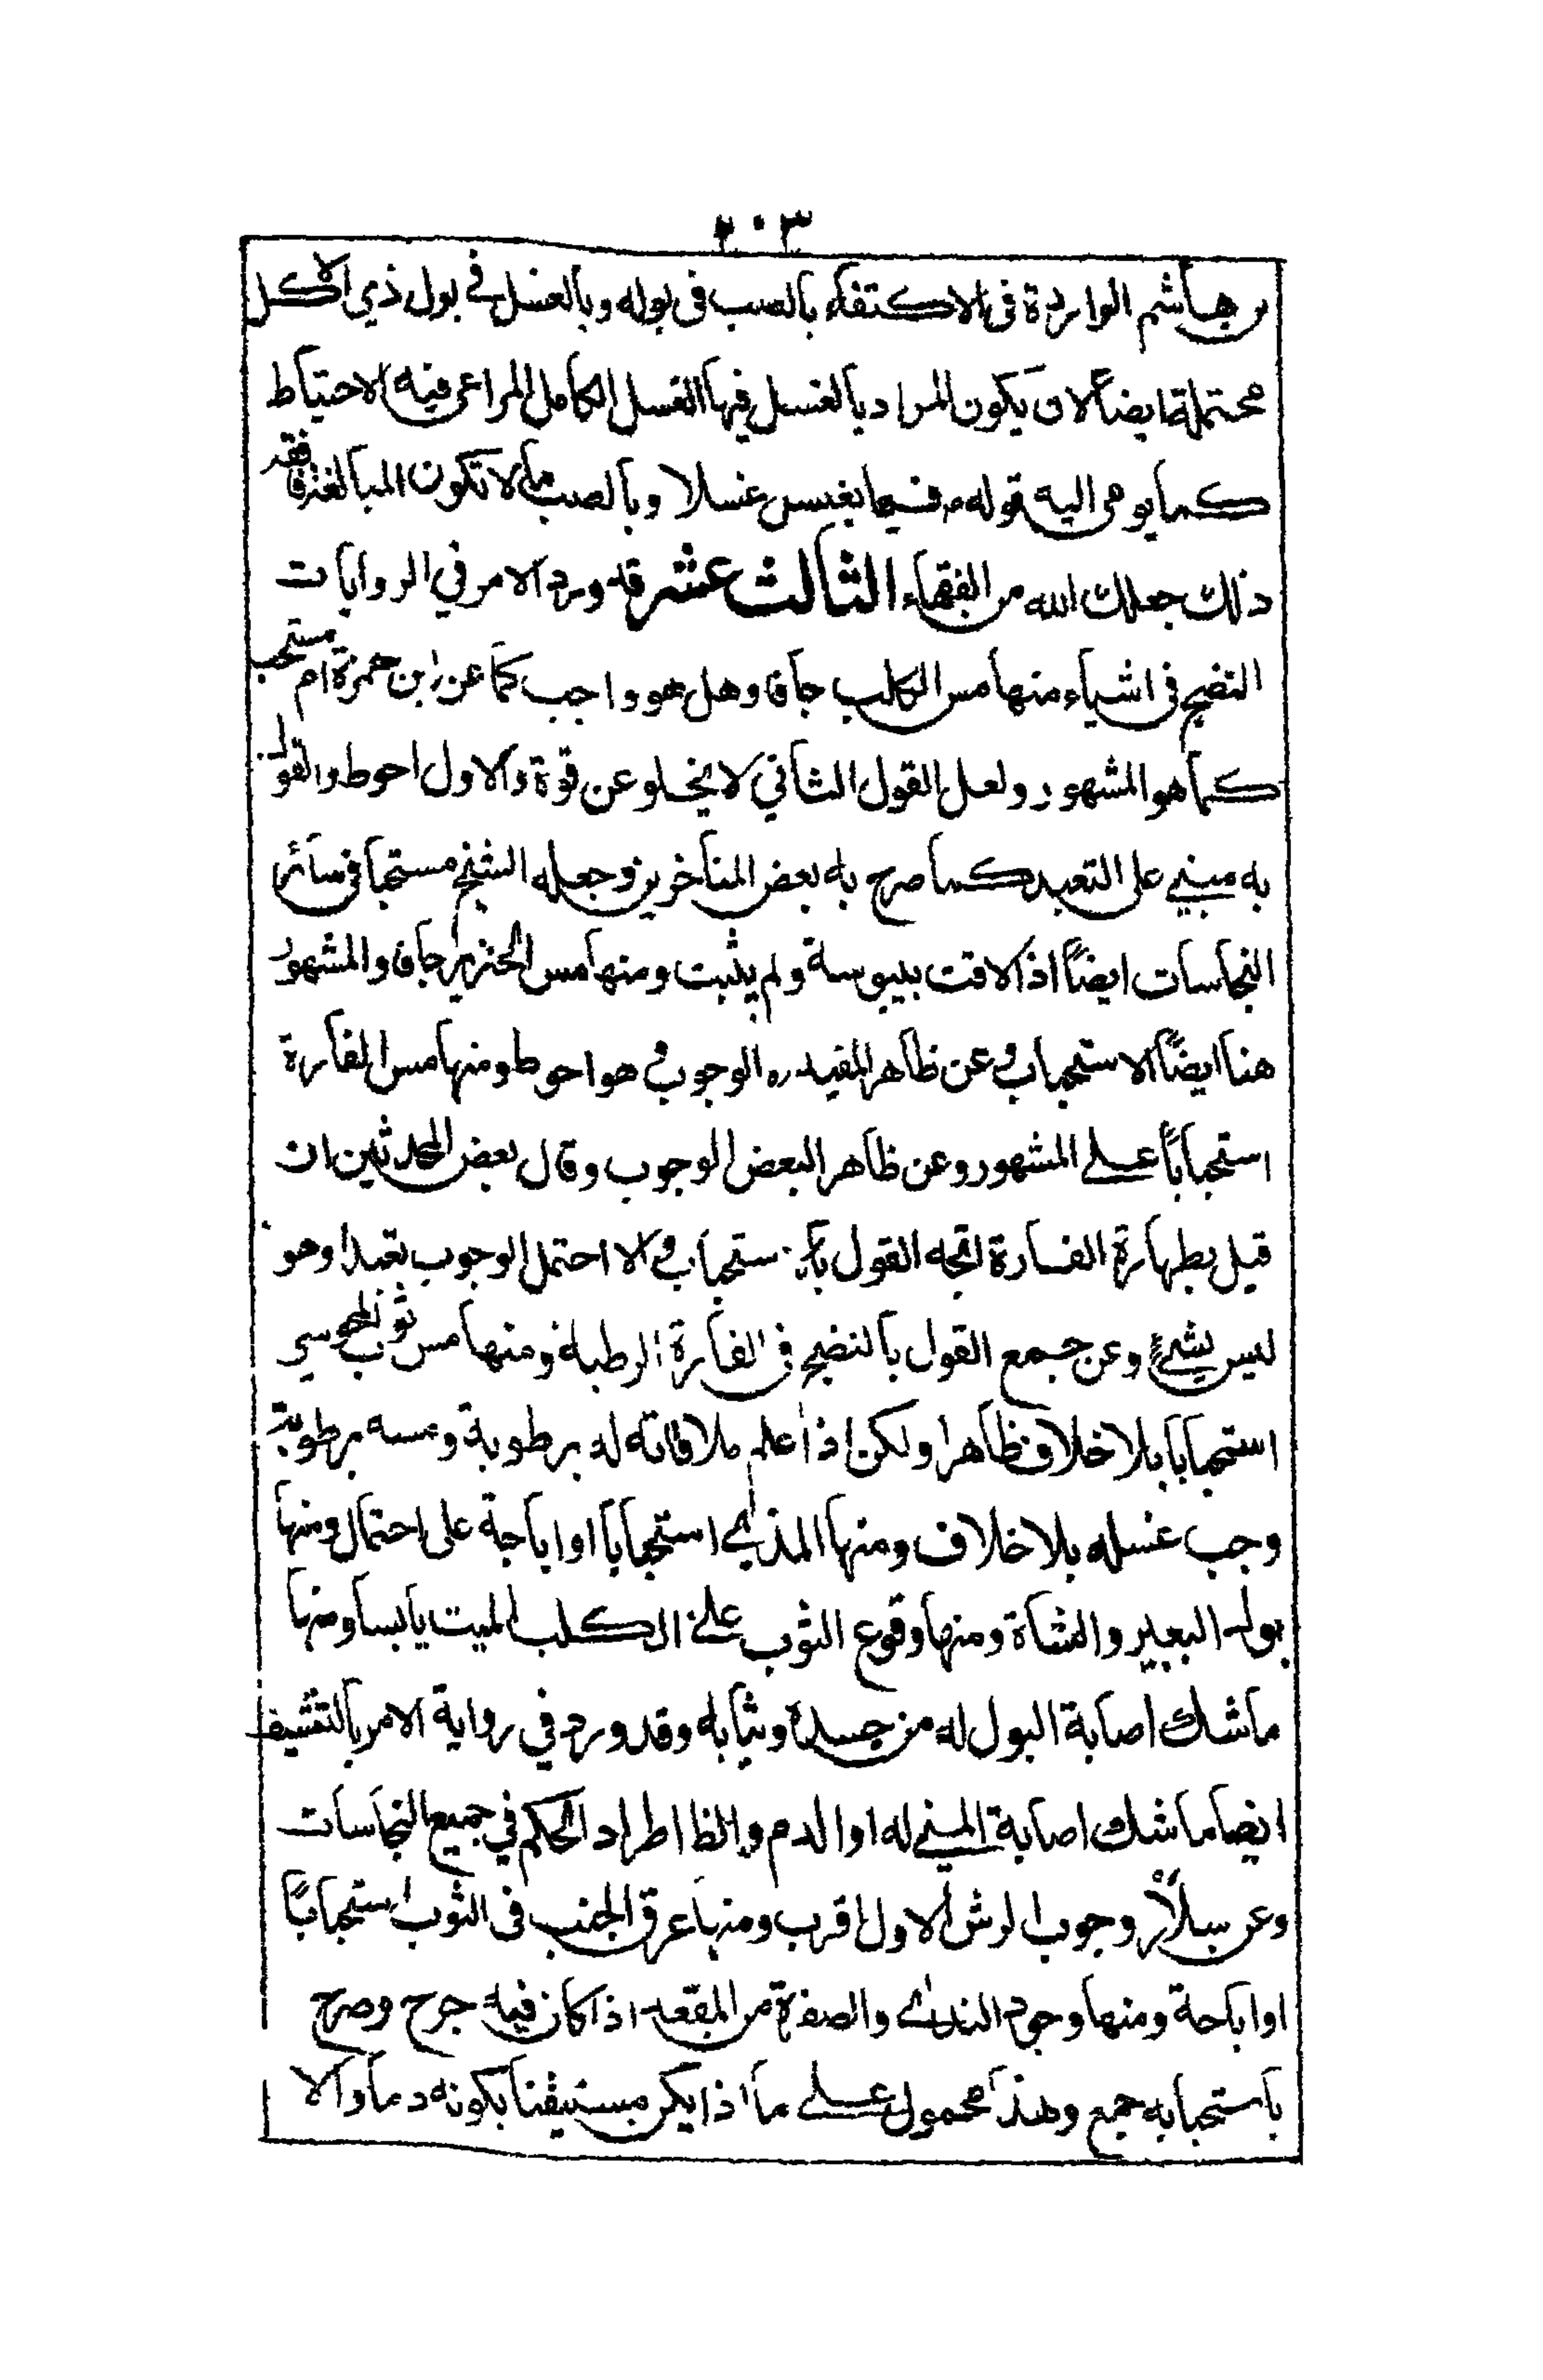 ٢٠٣
بن هاشم الواردة في الاكتفاء بالصب في بوله وبالغسل في بول ذي الاكل
محتملة ايضاً لان يكون المراد بالغسل فيها الغسل الكامل المراعى فيه الاحتياط
كما يومى اليه قوله فيما بغسل غسلا وبالصب ما لا تكون المبالغة فافقه
ذلك جعلك الله من الفقهاء الثالث عشر قد ورد الامر في الروايات
النضح في اشياء منها مس الكلب جافا وهل هو واجب كما عن ابن حمزة ام مستحب
كما هو المشهور ولعل القول الثاني لا يخلو عن قوة والاول احوط والقول
به مبني على التعبد كما صرح به بعض المتاخرين وجعله الشيخ مستحبا في سائر
النجاسات ايضاً اذا لاقت بيبوسة ولم يثبت ومنها مس الخنزير جافا والمشهور
هنا ايضاً الاستحباب وعن ظاهر المفيد ره الوجوب وهو احوط ومنها مس الفارة
استحباباً على المشهور وعن ظاهر البعض الوجوب وقال بعض المحدثين ان
قيل بطهارة الفارة اتجه القول بالاستحباب والا احتمل الوجوب تعبدا وهو
ليس بشئ وعن جمع القول بالنضح في الفارة الرطبة ومنها مس ثوب المجوسي
استحبابا بلا خلاف ظاهرا ولكن اذا علم ملاقاته له برطوبة ومسه برطوبة
وجب غسله بلا خلاف ومنها المذي استحبابا او اباحة على احتمال ومنها
بول البعير والشاة ومنها وقوع الثوب على الكلب الميت يابسا ومنها
ما شك اصابة البول له من جسده وثيابه وقد ورد في رواية الامر بالتنشيف
ايضا ما شك اصابة المني له او الدم والظ اطراد الحكم في جميع النجاسات
وعن سلاّر وجوب الرش الاول اقرب ومنها عرق الجنب في الثوب استحباباً
او اباحة ومنها وجود الندى والصفرة من المقعد اذا كان فيه جرح وصرح
باستحبابه جمع وهذا محمول على ما اذا يكن مستيقنا بكونه دما والا